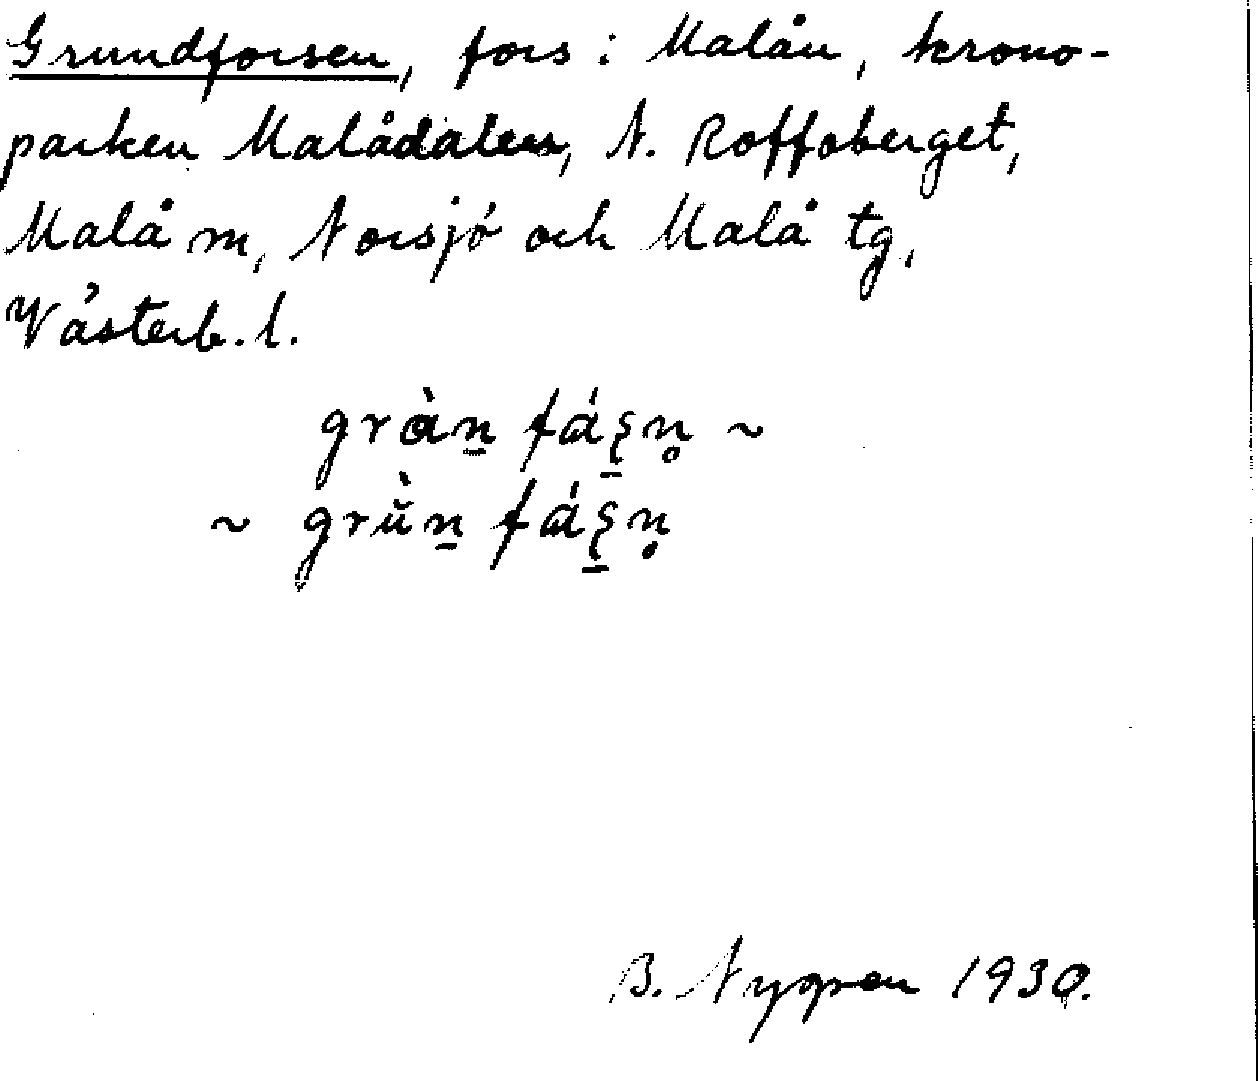 Grundforsen, fors i Malån, krono-
parken Malådalen, N. Roffoberget,
Malå m, Norsjö och Malå tg,
Västerb. l.
gràn̲ fáʂ̲n̥ ~
~ grǜn̲ fáʂ̲n̥
B. Nygren 1930.